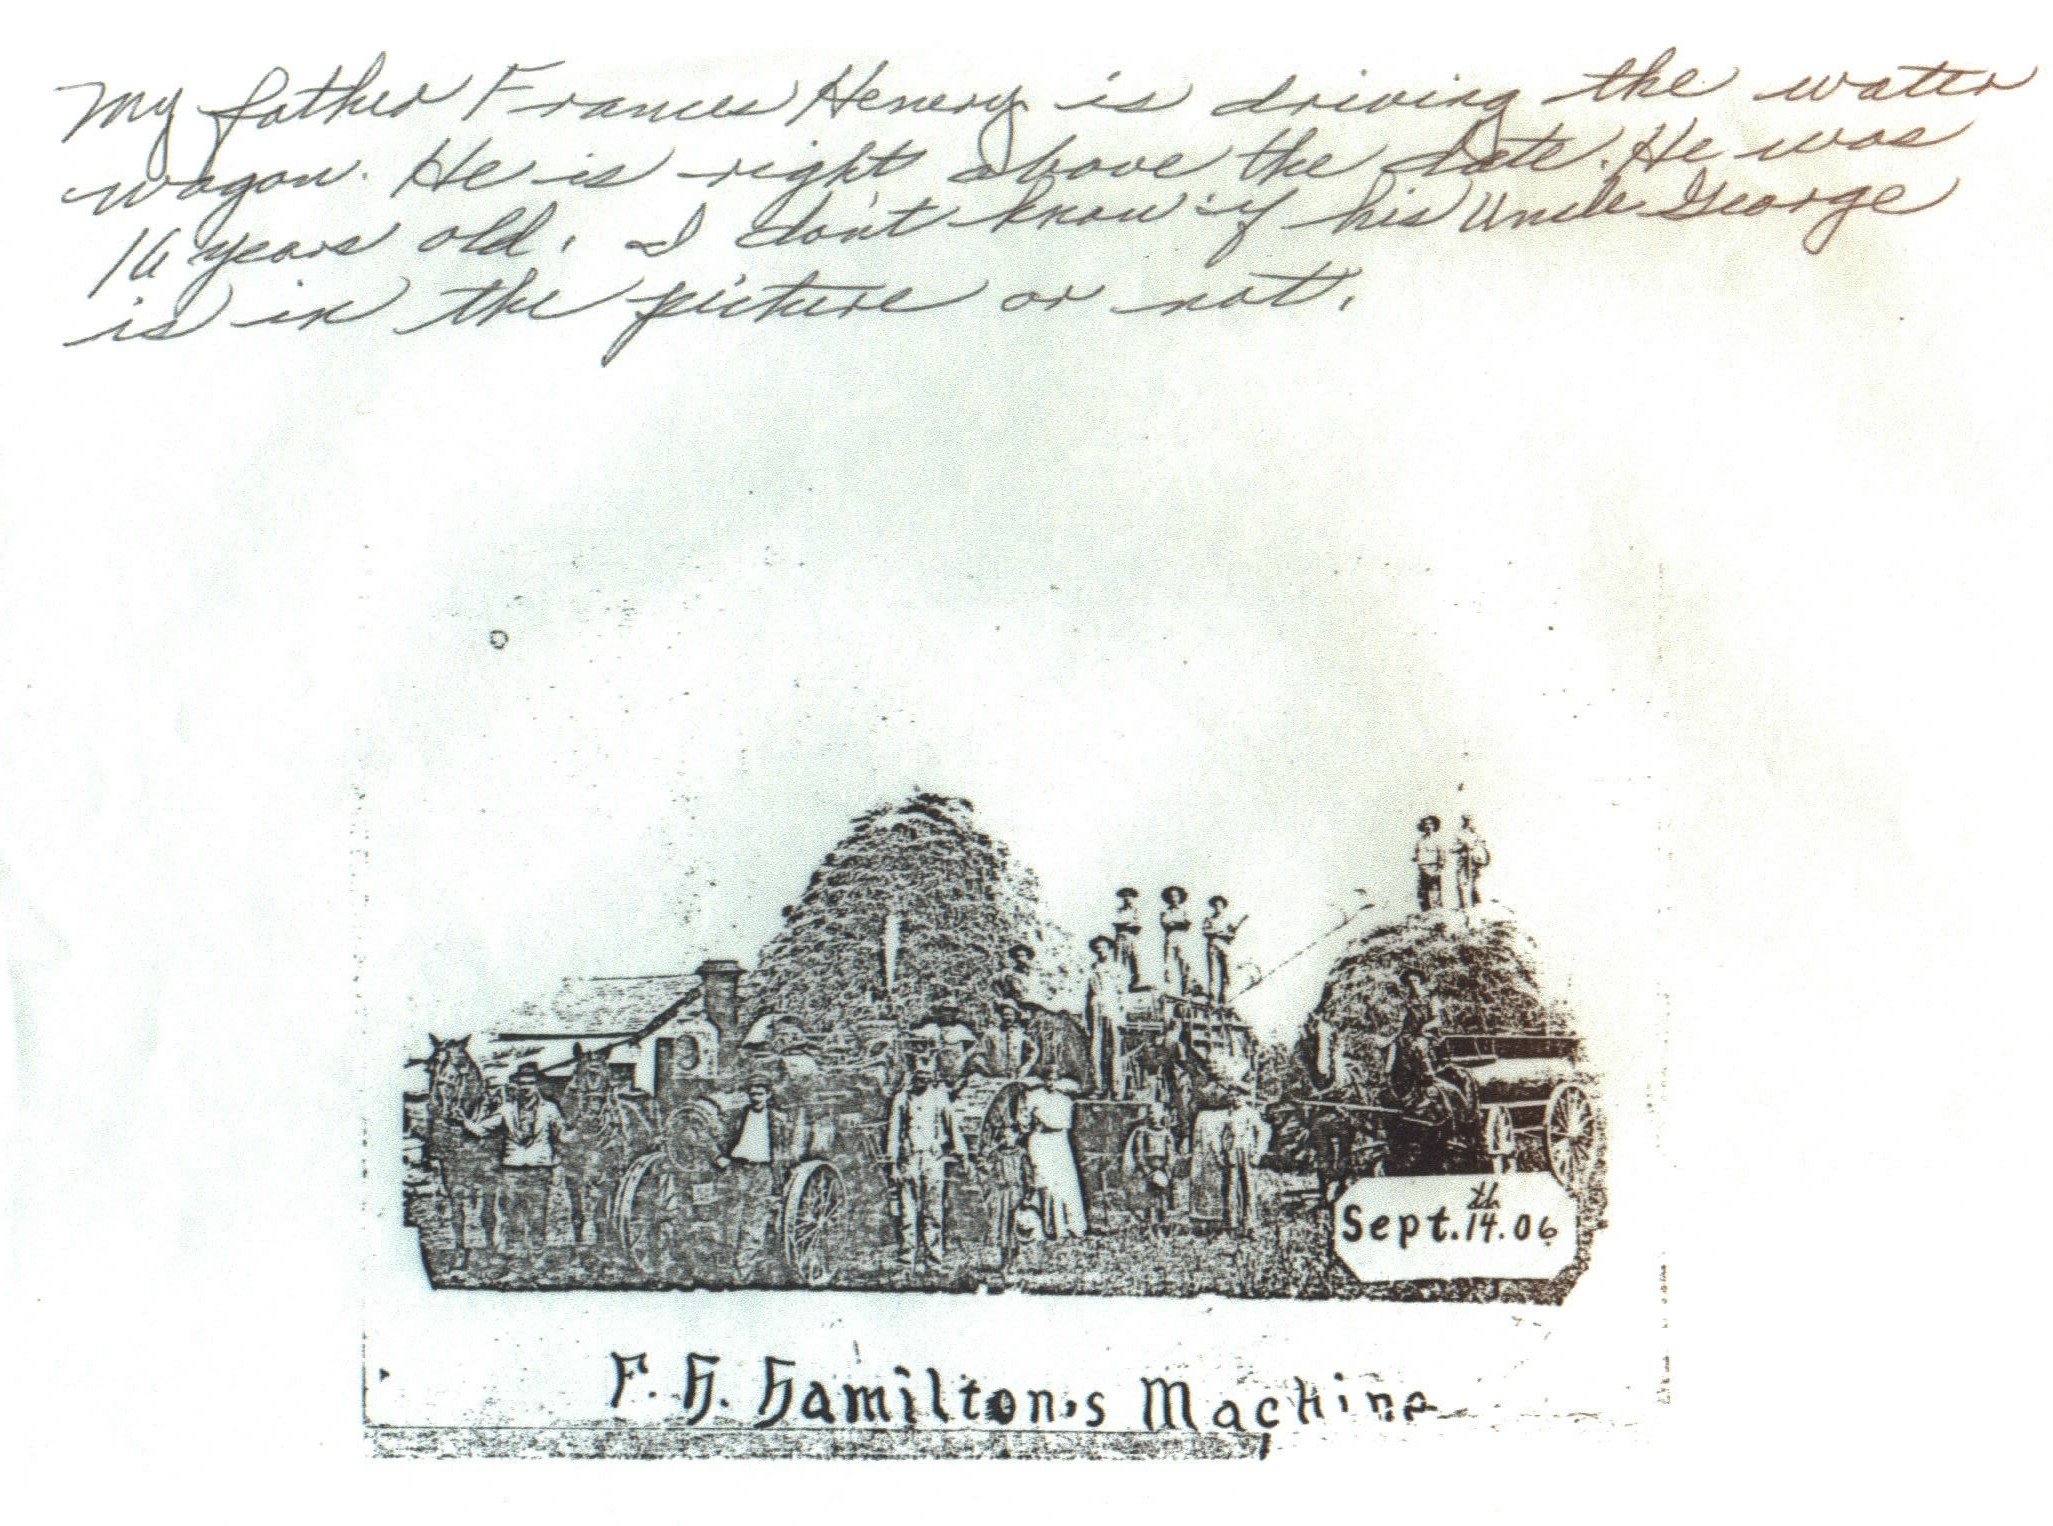 My father Frances Henery is driving the water
wagon. He is right above the date. He was
16 years old. I don't know if his Uncle George
is in the picture or not.
Sept. 14th. 06
F. H. Hamilton's Machine